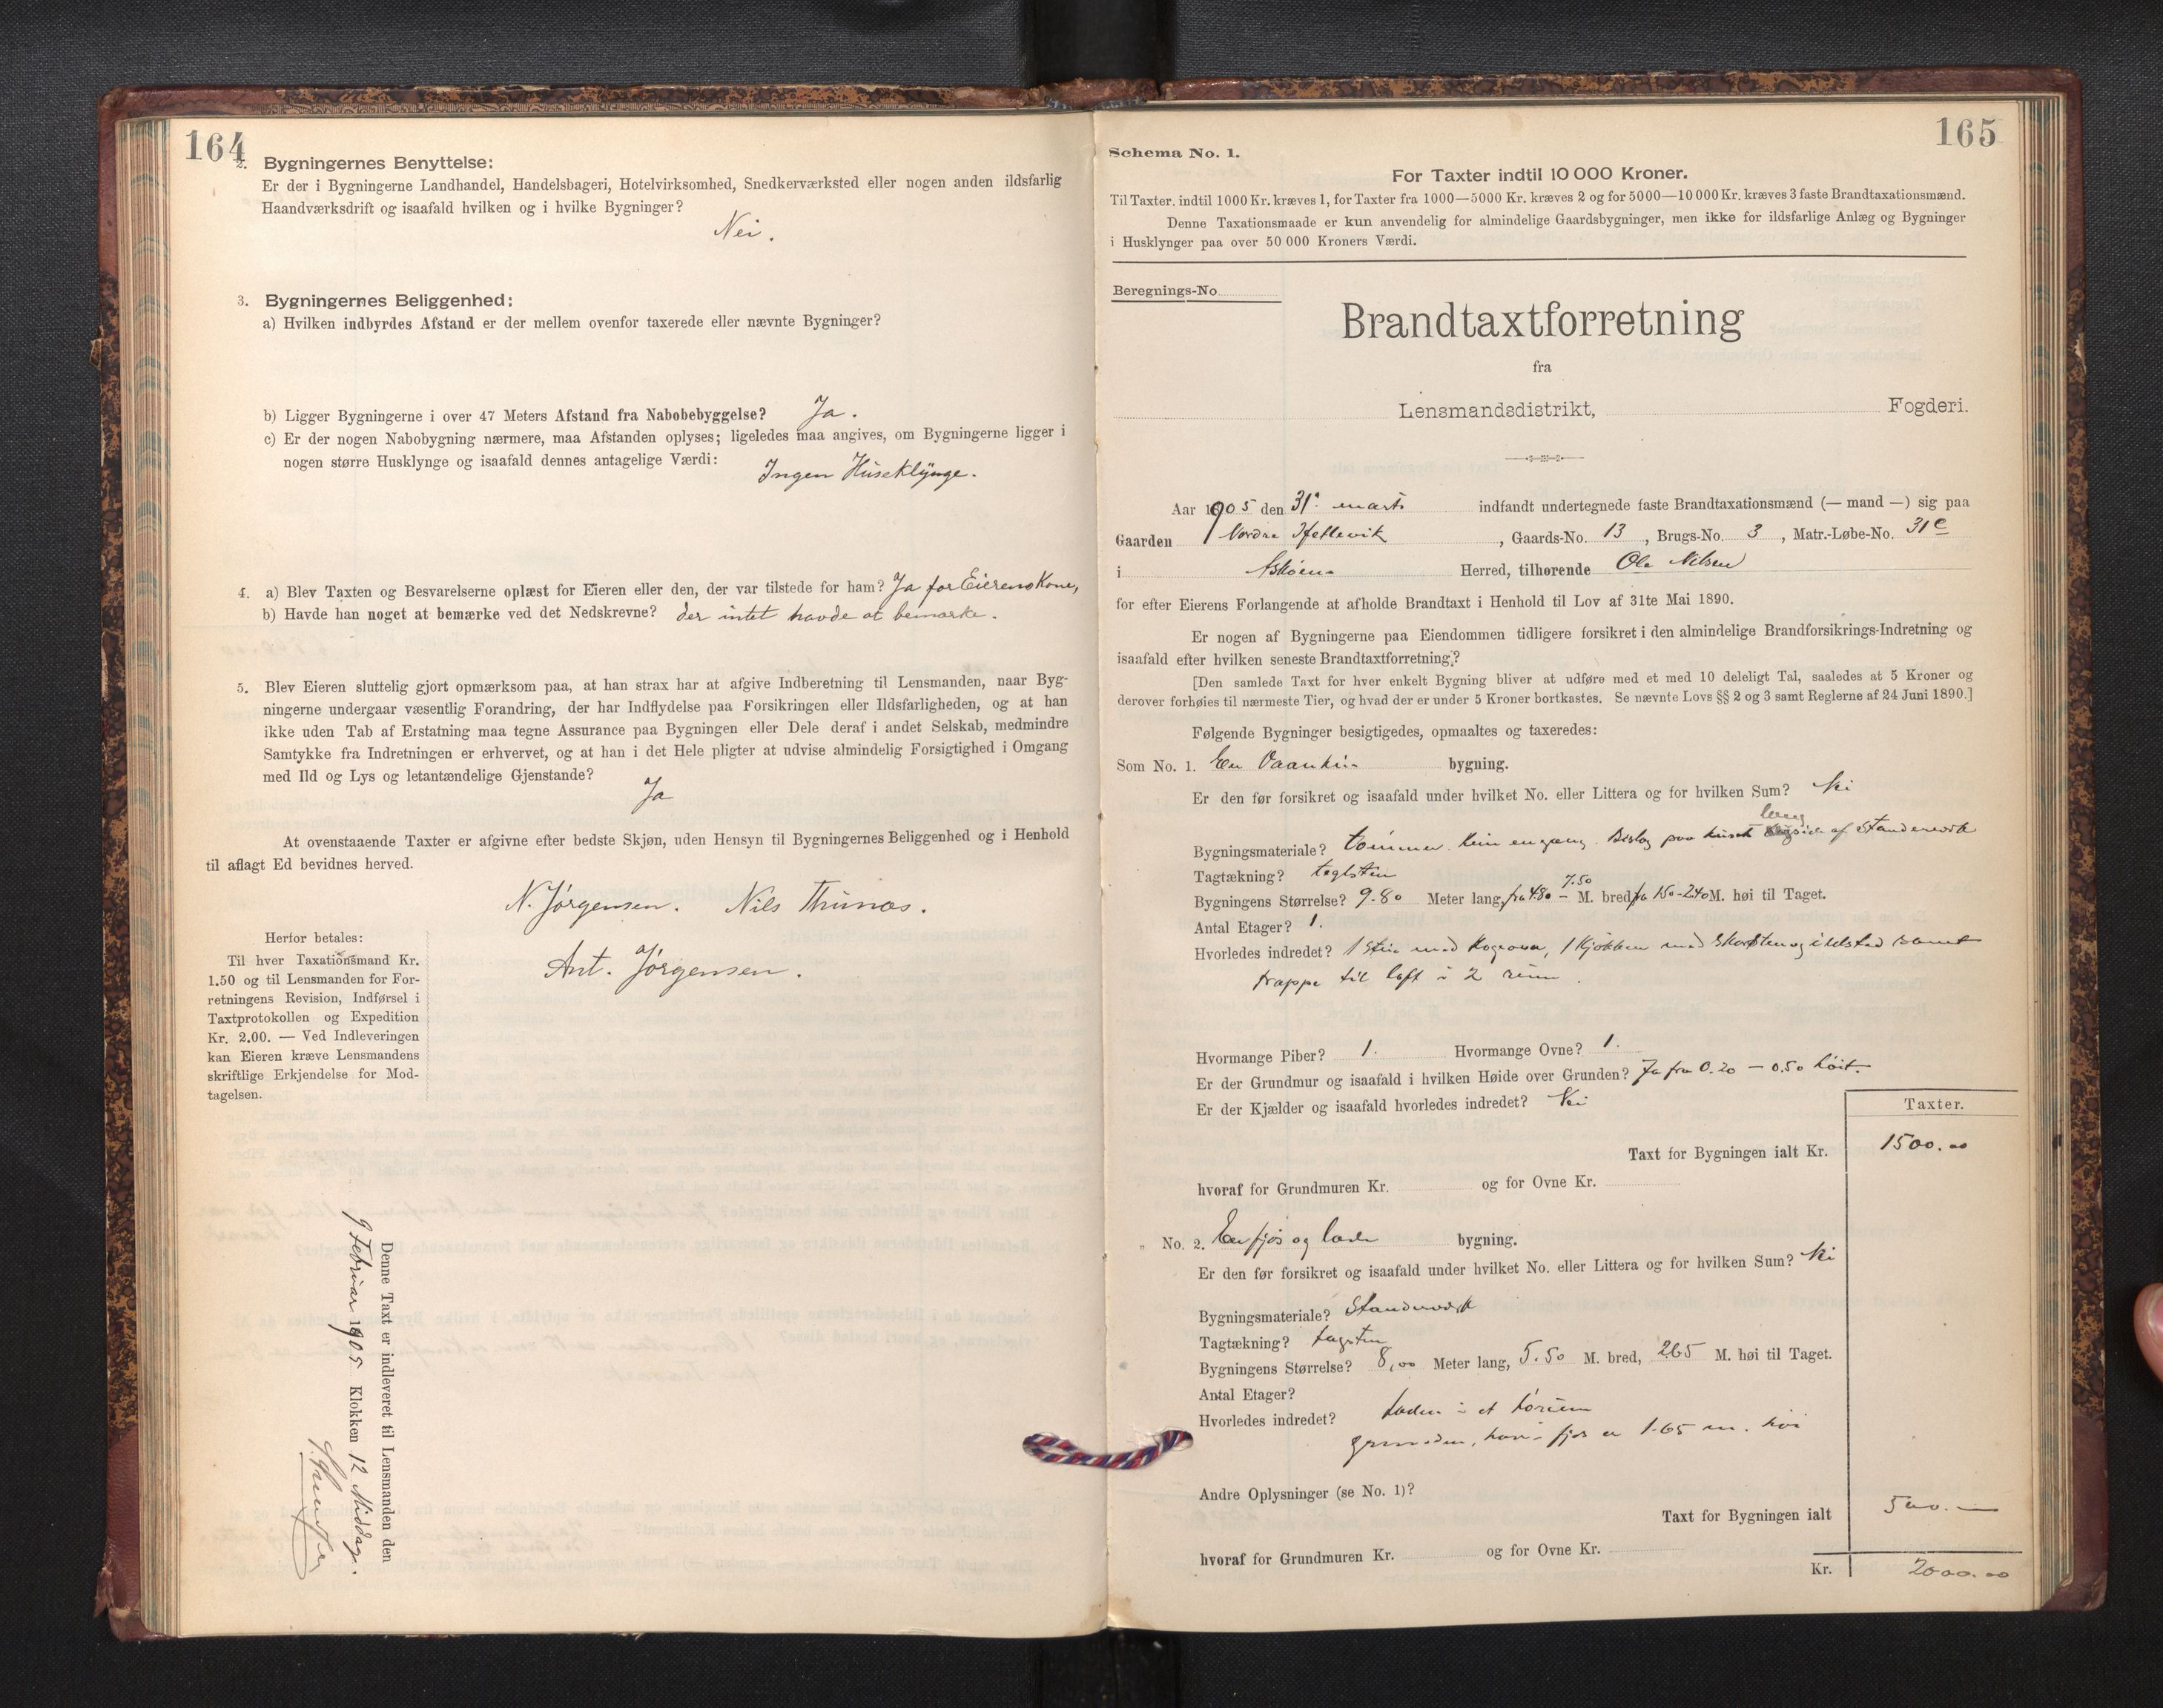 164
2. Bygningernes Benyttelse:
Er der i Bygningerne Landhandel, Handelsbageri, Hotelvirksomhed, Snedkerværksted eller nogen anden ildsfarlig
Haandværksdrift og isaafald hvilken og i hvilke Bygninger?
Nei.
3. Bygningernes Beliggenhed:
a) Hvilken indbyrdes Afstand er der mellem ovenfor taxerede eller nævnte Bygninger?
b) Ligger Bygningerne i over 47 Meters Afstand fra Nabobebyggelse? Ja.
c) Er der nogen Nabobygning nærmere, maa Afstanden oplyses; ligeledes maa angives, om Bygningerne ligger i
nogen større Husklynge og isaafald dennes antagelige Værdi:
Ingen Huseklynge.
4. a) Blev Taxten og Besvarelserne oplæst for Eieren eller den, der var tilstede for ham? Ja for Eierens Kone,
b) Havde han noget at bemærke ved det Nedskrevne? der intet havde at bemærke.
5. Blev Eieren sluttelig gjort opmærksom paa, at han strax har at afgive Indberetning til Lensmanden, naar Byg-
ningerne undergaar væsentlig Forandring, der har Indflydelse paa Forsikringen eller Ildsfarligheden, og at han
ikke uden Tab af Erstatning maa tegne Assurance paa Bygningen eller Dele deraf i andet Selskab, medmindre
Samtykke fra Indretningen er erhvervet, og at han i det Hele pligter at udvise almindelig Forsigtighed i Omgang
med Ild og Lys og letantændelige Gjenstande?
Ja
At ovenstaaende Taxter er afgivne efter bedste Skjøn, uden Hensyn til Bygningernes Beliggenhed og i Henhold
til aflagt Ed bevidnes herved.
N. Jørgensen. Nils Thunæs.
Ant. Jørgensen.
Herfor betales:
Til hver Taxationsmand Kr.
1.50 og til Lensmanden for For-
retningens Revision, Indførsel i
Taxtprotokollen og Expedition
Kr. 2.00. — Ved Indleveringen
kan Eieren kræve Lensmandens
skriftlige Erkjendelse for Mod-
tagelsen.
Denne Taxt er indleveret til Lensmanden den
9 Februar 1905 Klokken 12 Middag.
165
Schema No. 1.
For Taxter indtil 10 000 Kroner.
Til Taxter. indtil 1000 Kr. kræves 1, for Taxter fra 1000—5000 Kr. kræves 2 og for 5000—10 000 Kr. kræves 3 faste Brandtaxationsmænd.
Denne Taxationsmaade er kun anvendelig for almindelige Gaardsbygninger, men ikke for ildsfarlige Anlæg og Bygninger
i Husklynger paa over 50 000 Kroners Værdi.
Beregnings-No.
Brandtaxtforretning
fra
Lensmandsdistrikt, Fogderi.
Aar 1905 den 31. marts indfandt undertegnede faste Brandtaxationsmænd (— mand —) sig paa
Gaarden Nordre Heflevik, Gaards-No. 13, Brugs-No. 3, Matr.-Løbe-No. 31c
i Askøens Herred, tilhørende Ole Nilsen
for efter Eierens Forlangende at afholde Brandtaxt i Henhold til Lov af 31te Mai 1890.
Er nogen af Bygningerne paa Eiendommen tidligere forsikret i den almindelige Brandforsikrings-Indretning og
isaafald efter hvilken seneste Brandtaxtforretning?
[Den samlede Taxt for hver enkelt Bygning bliver at udføre med et med 10 deleligt Tal, saaledes at 5 Kroner og
derover forhøies til nærmeste Tier, og hvad der er under 5 Kroner bortkastes. Se nævnte Lovs §§ 2 og 3 samt Reglerne af 24 Juni 1890.]
Følgende Bygninger besigtigedes, opmaaltes og taxeredes:
Som No. 1. En Vaanhus bygning.
Er den før forsikret og isaafald under hvilket No. eller Littera og for hvilken Sum? Nei
Bygningsmateriale? tømmer. Bislag paa huset langside af Standerværk
Tagtækning? taglsten
Bygningens Størrelse? 9.80 Meter lang, fra 4.80 - 7.50 M. bred, fra 1.50-2.40 M. høi til Taget.
Antal Etager? 1.
Hvorledes indredet? 1 Stue med Kogeovn, 1 Kjøkken med Skorsten og ildsted samt
trappe til loft i 2 rum.
Hvormange Piber? 1. Hvormange Ovne? 1.
Er der Grundmur og isaafald i hvilken Høide over Grunden? Ja fra 0.20 — 0.50 høit.
Er der Kjælder og isaafald hvorledes indredet? Nei
Taxter.
Taxt for Bygningen ialt Kr. 1500.00
hvoraf for Grundmuren Kr. og for Ovne Kr.
" No. 2. En fjøs og lade bygning.
Er den før forsikret og isaafald under hvilket No. eller Littera og for hvilken Sum? Nei
Bygningsmateriale? Standerværk
Tagtækning? tagsten
Bygningens Størrelse? 8,00 Meter lang, 5.50 M. bred, 265 M. høi til Taget.
Antal Etager?
Hvorledes indredet? Laden i et
fjøs er 1.65 m. høi
Andre Oplysninger (se No. 1)?
Taxt for Bygningen ialt 500.—
hvoraf for Grundmuren Kr. og for Ovne Kr.
Kr. 2000.00